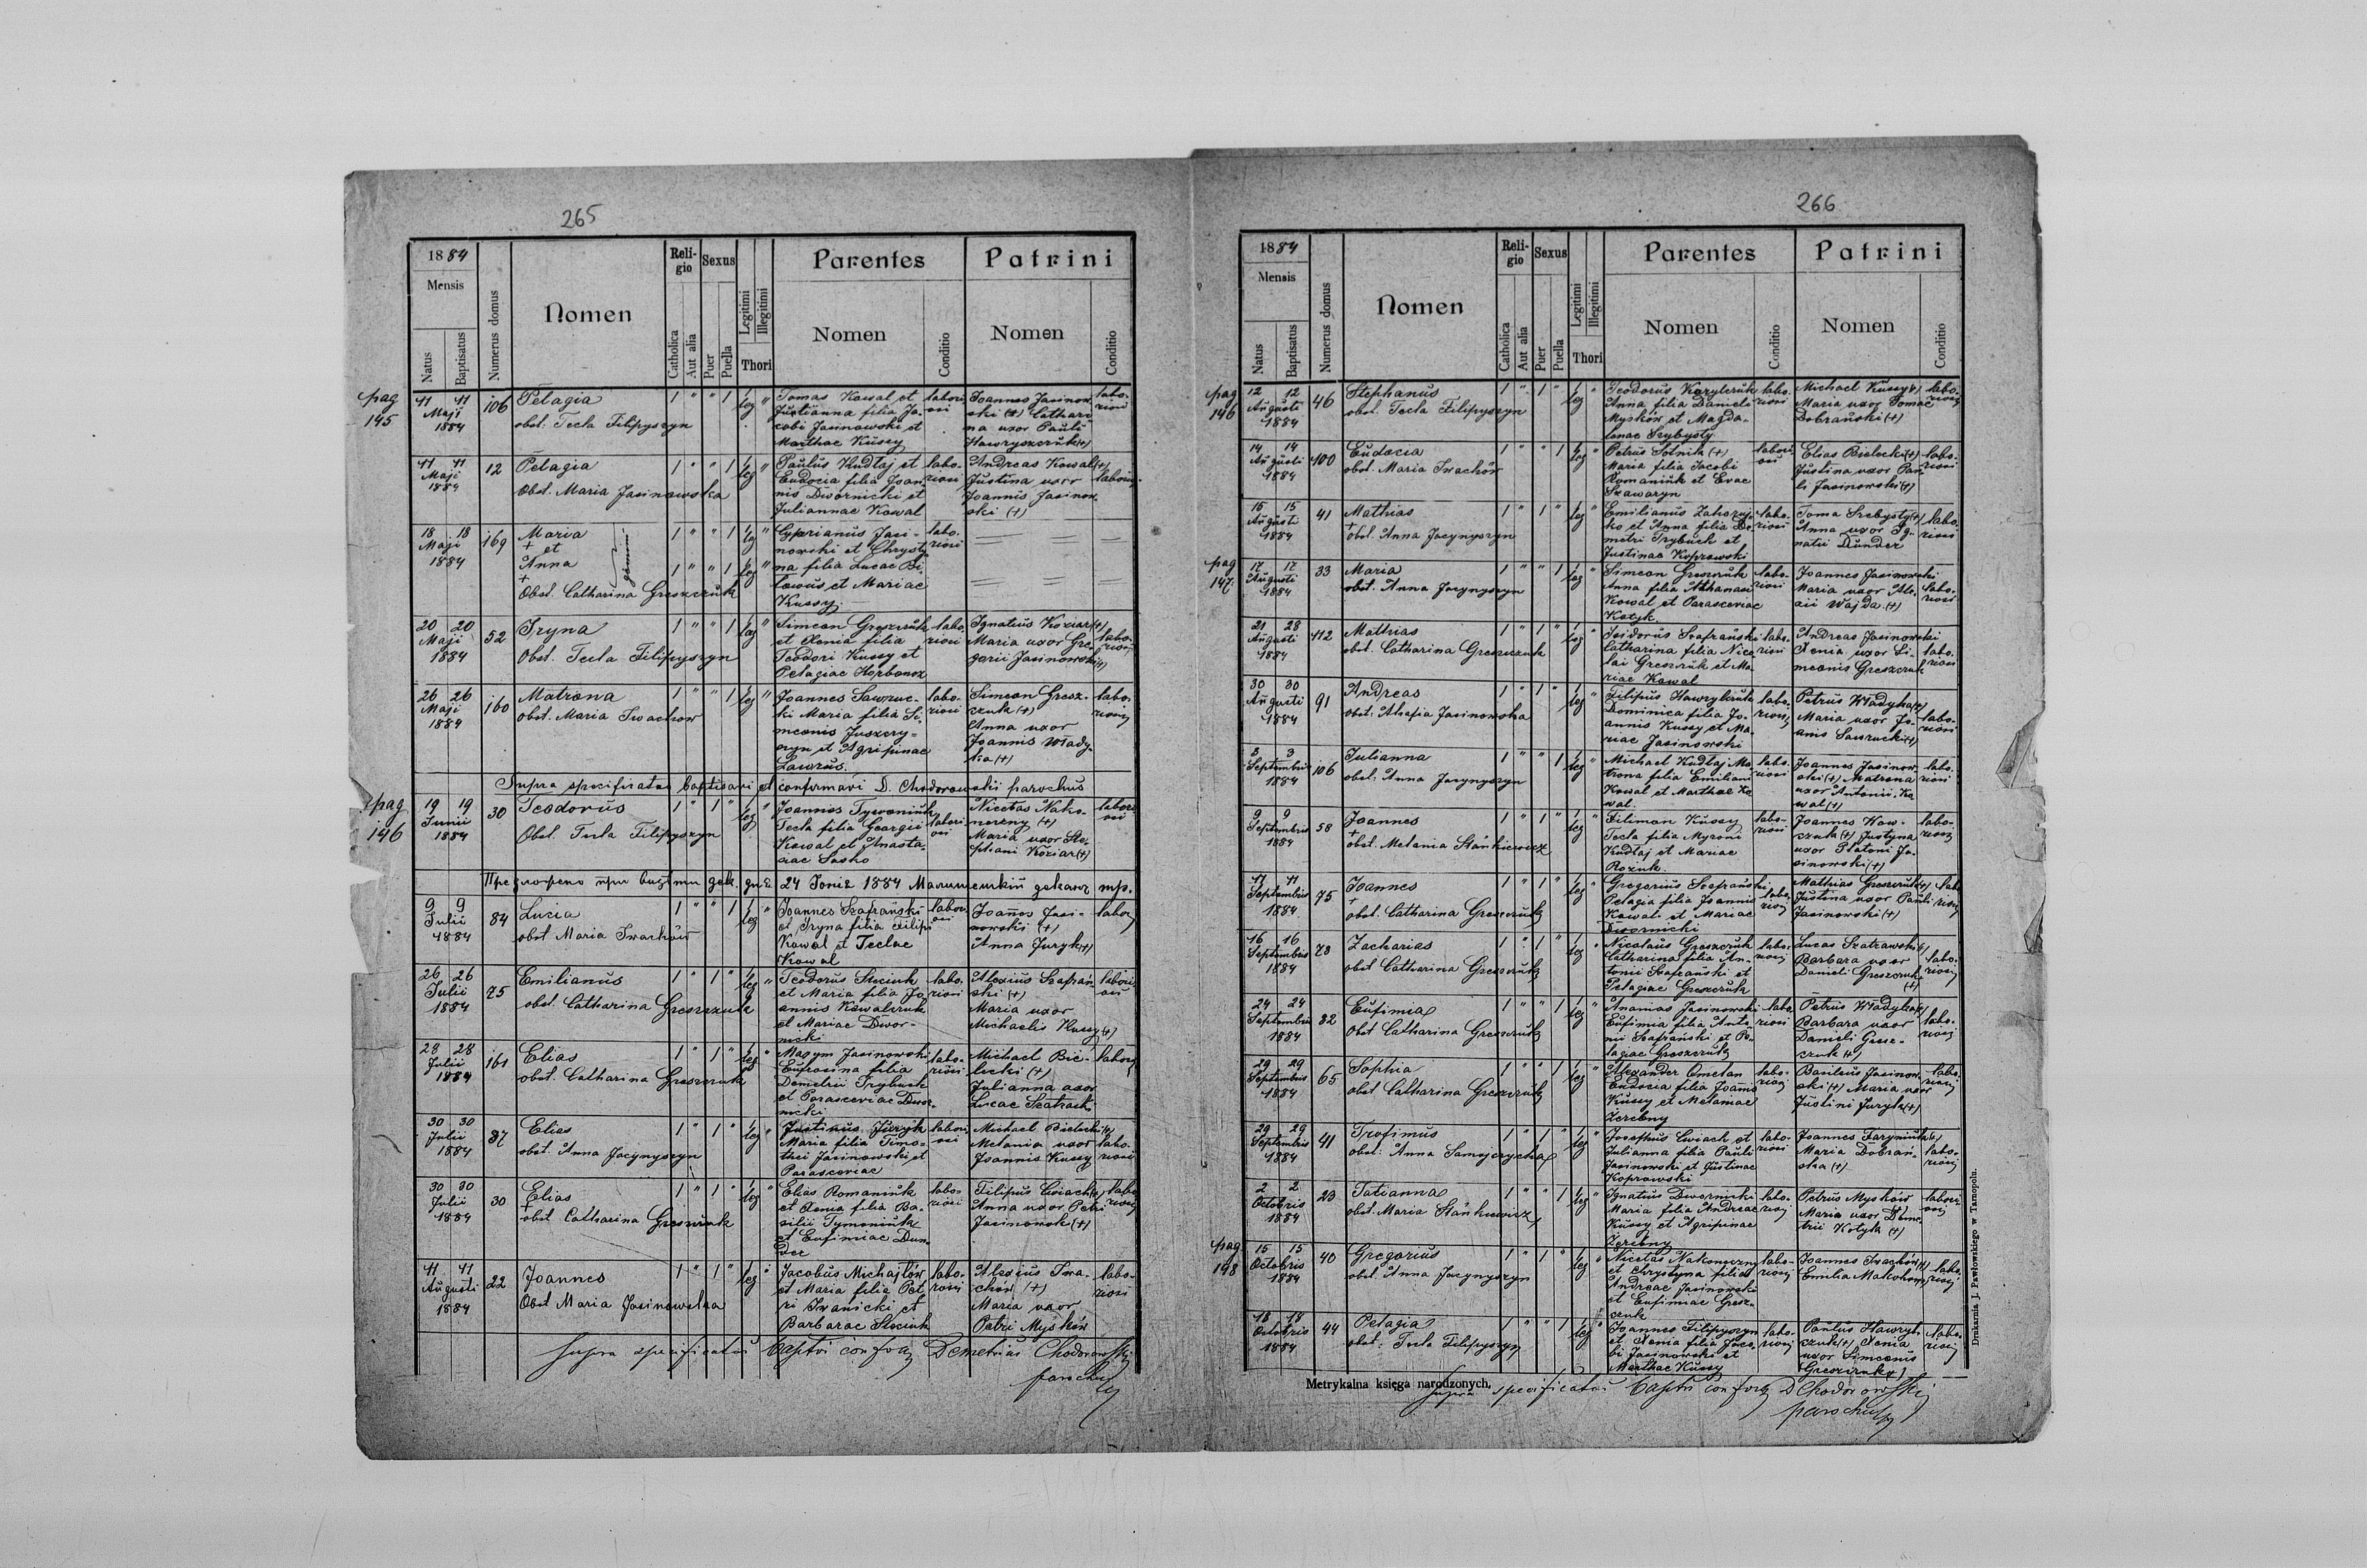 265
1884
Mensis
Natus
Baptisatus
Numerus domus
Nomen
Religio
Catholica
Aut alia
Sexus
Puer
Puella
Legitimi
Illegitimi
Thori
Parentes
Nomen
Conditio
Patrini
Nomen
Conditio
pag
145
11 11
Maji
1884
106
Pelagia
obst. Tecla Filipyszyn
1 " " 1 leg "
Tomas Kowal et
Justianna filia Ja-
cobi Jasinowski et
Marthae Kussy
labori
osi
Joannes Jasinow
ski (+) Cathari
na uxor Pauli
Hawryszczuk (+)
labo-
riosi
11 11
Maji
1884
12
Pelagia
Obst. Maria Jasinowska
1 " " 1 leg "
Paulus Kudlaj et
Eudocia filia Joan
nis Dwornicki et
Juliannae Kowal
labo-
riosi
Andreas Kowal (+)
Justina uxor
Joannis Jasinow
ski (+)
18 18
Maji
1884
169
Maria
+ et
Anna
+
gemini
Obst. Catharina Greszczuk
1 " " 1 leg "
1 " " 1 leg "
Cyprianus Jasi-
nowski et Chrysty
na filia Lucae Bi-
lowus et Mariae
Kussy
labo-
riosi
20 20
Maji
1884
52
Iryna
Obst. Tecla Filipyszyn
1 " " 1 leg "
Simeon Greszczuk
et Xenia filia
Teodori Kussy et
Pelagiae Horbonos
labo-
riosi
Ignatius Koziar (+)
Maria uxor Gre
gorii Jasinowski (+)
labo-
riosi
26 26
Maji
1884
160
Matrona
obst. Maria Iwachow
1 " " 1 leg "
Joannes Sawruc-
ki Maria filia Si-
meonis Juszczy-
szyn et Agripinae
Lawrus.
labo-
riosi
Simeon Gresz-
czuk (+)
Anna uxor
Joannis Wlady-
ka (+)
labo-
riosi
Supra specificatos baptisavi et confirmavi D. Chodorowski parochus
pag
146
19 19
Junii
1884
30
Teodorus
Obst. Tecla Filipyszyn
1 " 1 " leg "
Joannes Tymoniuk
Tecla filia Georgii
Kowal et Anasta-
siae Sasko
labori
osi
Nicetas Nako-
neczny (+)
Maria uxor Ste-
phani Koziar (+)
labori
osi
24 Юнія 1884
9 9
Julii
1884
84
Lucia
obst Maria Iwachów
1 " " 1 leg "
Joannes Szafrański
et Iryna filia Filipi
Kowal et Teclae
Kowal
labori
osi
Joannes Jasi-
nowski (+)
Anna Juryk (+)
labor
26 26
Julii
1884
75
Emilianus
obst. Catharina Greszczuk
1 " 1 " leg "
Teodorus Steciuk
et Maria filia Jo
annis Kowalczuk
et Mariae Dwor-
nicki
labo-
riosi
Alexius Szafrań
ski (+)
Maria uxor
Michaelis Kussy (+)
labori
osi
28 28
Julii
1884
161
Elias
obst. Catharina Greszczuk
1 " 1 " leg "
Maxym Jasinowski
Eufrosina filia
Demetrii Trybuch
et Parasceviae Dwor-
nicki
labo-
riosi
Michael Bie-
lecki (+)
Julianna uxor
Lucae Szatraski
30 30
Julii
1884
87
Elias
obst. Anna Jacynyszyn
1 " 1 " leg "
Justinus Juryk
Maria filia Timo-
thei Jasinowski et
Parasceviae
labori
osi
Michael Bielecki (+)
Melania uxor
Joannis Kussy
labo-
riosi
30 30
Julii
1884
30
Elias
+
obst Catharina Greszczuk
1 " 1 " leg "
Elias Romaniuk
et Xenia filia Ba-
silii Tymoniuk
et Eufimiae Dun-
der
labo-
riosi
Filipus Cwiach (+)
Anna uxor Petri
Jasinowsk (+)
labo
riosi
11 11
Augusti
1884
22
Joannes
Obst Maria Jasinowska
1 " 1 " leg "
Jacobus Michajlów
et Maria filia Pet
ri Iwanicki et
Barbarae Steciuk
labo-
riosi
Alexius Iwa-
chów (+)
Maria uxor
Petri Myśków
labo-
riosi
Supra specificatos Demetrius Chodorowski
parochus
266
1884
Mensis
Natus
Baptisatus
Numerus domus
Nomen
Religio
Catholica
Aut alia
Sexus
Puer
Puella
Legitimi
Illegitimi
Thori
Parentes
Nomen
Conditio
Patrini
Nomen
Conditio
pag
146
12 12
Augusti
1884
46
Stephanus
obst. Tecla Filipyszyn
1 " 1 " leg "
Teodorus Korylczuk
Anna filia Danieli
Myśków et Magda-
lenae Szybysty
labo-
riosi
Michael Kussy (+)
Maria uxor Tomae
Dobrański (+)
labo-
riosi
14 14
Augusti
1884
100
Eudocia
obst. Maria Iwachów
1 " " 1 leg "
Petrus Sotnik (+)
Maria filia Jacobi
Romaniuk et Evae
Szawaryn
labori
osi
Elias Bielecki (+)
Justina uxor Pau
li Jasinowski (+)
labo-
riosi
15 15
Augusti
1884
41
Mathias
+
obst. Anna Jacynyszyn
1 " 1 " leg "
ko et Anna filia De-
metri Trybuch et
Justinae Koprowski
labo-
riosi
Toma Szebysty (+)
Anna uxor Ig-
natii Dunder
labo-
riosi
pag
147
17 17
Augusti
1884
33
Maria
obst. Anna Jacynyszyn
1 " " 1 leg "
Simeon Greszczuk
Anna filia Athanasii
Kowal et Parasceviae
Kotyk
labo-
riosi
Joannes Jasinowski
Maria uxor Ale-
xii Wajda (+)
labo-
riosi
21 28
Augusti
1884
112
Mathias
obst. Catharina Greszczuk
1 " 1 " leg "
Isidorus Szafrański
Catharina filia Nico
lai Greszczuk et Ma-
riae Kowal
labo-
riosi
Andreas Jasinowski
Xenia uxor Si-
meonis Greszczuk
labo-
riosi
30 30
Augusti
1884
91
Andreas
obst. Ahafia Jasinowska
1 " 1 " leg "
Filipus Hawrylczuk
Dominica filia Jo-
annis Kussy et Ma-
riae Jasinowski
labo-
riosi
Petrus Wladyka (+)
Maria uxor Jo-
anis Sawrucki (+)
labo-
riosi
3 3
Septembris
1884
106
Julianna
obst: Anna Jacynyszyn
1 " " 1 leg "
Michael Kudlaj Ma-
trona filia Emiliani
Kowal et Marthae Ko
wal.
labo-
riosi
Joannes Jasinow-
ski (+) Matrona
uxor Antonii Ko
wal (+)
labo-
riosi
9 9
Septembris
1884
58
Joannes
+
obst. Melania Stańkiewicz
1 " 1 " leg "
Filimon Kussy
Tecla filia Myroni
Kudlaj et Mariae
Rozuk
labo-
riosi
Joannes Kow-
czuk (+) Justyna
uxor Platoni Ja-
sinowski (+)
labo-
riosi
11 11
Septembris
1884
75
Joannes
+
obst. Catharina Greszczuk
1 " 1 " leg "
Gregorius Szafrański
Pelagia filia Joannis
Kowal et Mariae
Dwornicki
labo-
riosi
Mathias Greszczuk (+)
Justina uxor Pauli
Jasinowski (+)
labo
riosi
16 16
Septembris
1884
78
Zacharias
obst Catharina Greszczuk
1 " 1 " leg "
Nicolaus Greszczuk
Catharina filia An-
tonii Szafrański et
Pelagiae Greszczuk
labo-
riosi
Lucas Szatrawski (+)
Barbara uxor
Danieli Greszczuk
(+)
labo-
riosi
24 24
Septembris
1884
82
Eufimia
Obst Catharina Greszczuk
1 " " 1 leg "
Ananias Jasinowski
Eufimia filia Anto
nii Szafrański et Pe-
lagiae Greszczuk
labo-
riosi
Petrus Wladyka (+)
Barbara uxor
Danieli Gresz-
czuk (+)
labo-
riosi
29 29
Septembris
1884
65
Sophia
obst Catharina Greszczuk
1 " " 1 leg "
Alexander Ometan
Eudocia filia Joannis
Kussy et Melaniae
Zerebny
labo-
riosi
Basilius Jasinow-
ski (+) Maria uxor
Justini Juryk (+)
labo-
riosi
29 29
Septembris
1884
41
Trofimus
obst: Anna Samojczycha
1 " 1 " leg "
Josephus Cwiach et
Julianna filia Pauli
Jasinowski et Justinae
Koprowski
labo-
riosi
Joannes Faryniuk (+)
Maria Dobrań-
ska (+)
labo-
riosi
2 2
Octobris
1884
23
Tatianna
obst. Maria Stańkiewicz
1 " " 1 leg "
Ignatius Dwornicki
Maria filia Andreae
Kussy et Agripinae
Zerebny
labo-
riosi
Petrus Myśków
Maria uxor Deme-
trii Kotyk (+)
labori
osi
pag
148
15 15
Octobris
1884
40
Gregorius
obst. Anna Jacynyszyn
1 " 1 " leg "
Nicetas Nakoneczny
et Chrystyna filia
Andreae Jasinowski
et Eufimiae Gresz-
czuk
labo-
riosi
Joannes Iwachów (+)
labo-
riosi
18 18
Octobris
1884
44
Pelagia
obst: Tecla Filipyszyn
1 " " 1 leg "
Joannes Filipyszyn
et Xenia filia Jaco-
bi Jasinowski et
Marthae Kussy
labo-
riosi
Paulus Hawryl-
czuk (+) Xenia
uxor Simeonis
Greszczuk (+)
labo-
riosi
Metrykalna księga narodzonych.
supra specificatos D Chodorowski
parochus
Drukarnia J. Pawłowskiego w Tarnopolu.